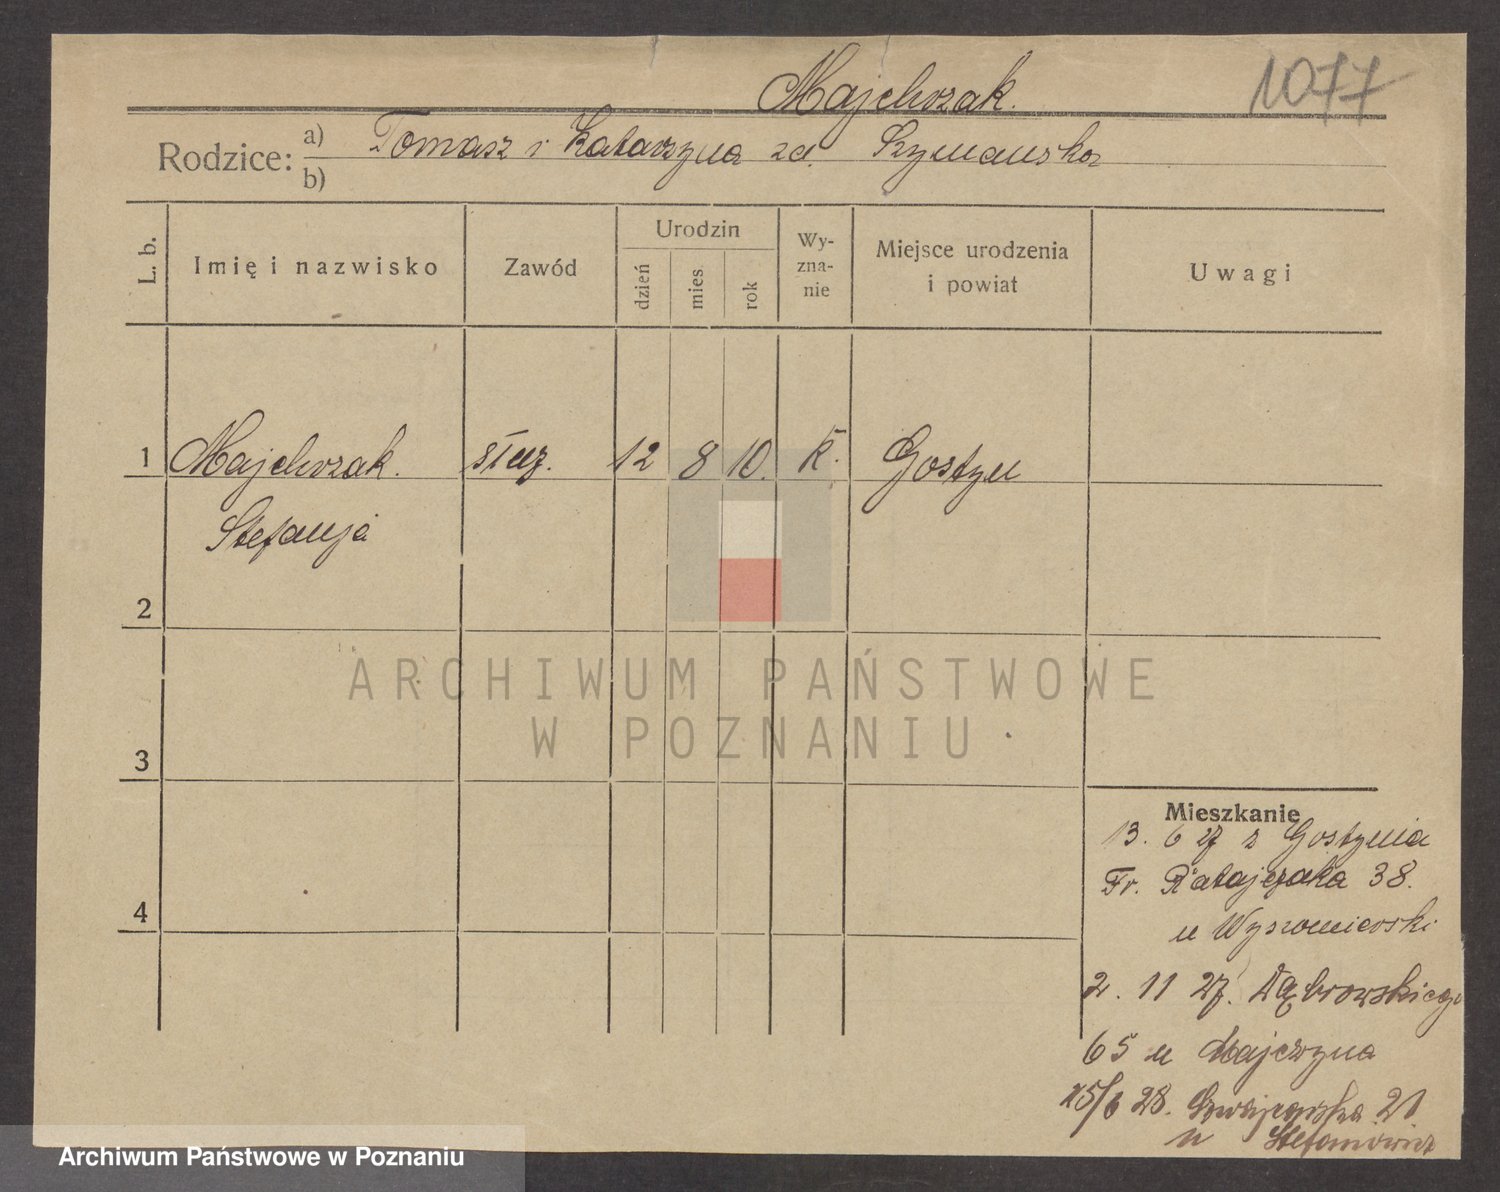 Majchrzak.
1077
Rodzice: a) b)
Tomasz i Katarzyna zd. Szymańska
L. b.
Imię i nazwisko
Zawód
Urodzin
dzień
mies
rok
Wy-
zna-
nie
Miejsce urodzenia
i powiat
Uwagi
1 Majchrzak. służ. 12 8 10. k. Gostyń
Stefanja
2
ARCHIWUM PAŃSTWOWE
W POZNANIU
3
Mieszkanie
13. 6 27 z Gostynia
Fr. Ratajczaka 38.
4
u Wyszomierski
2. 11 27. Dąbrowskiego
65 u
25/6 28. Szwajcarska 21
u Stefanowicz
Archiwum Państwowe w Poznaniu